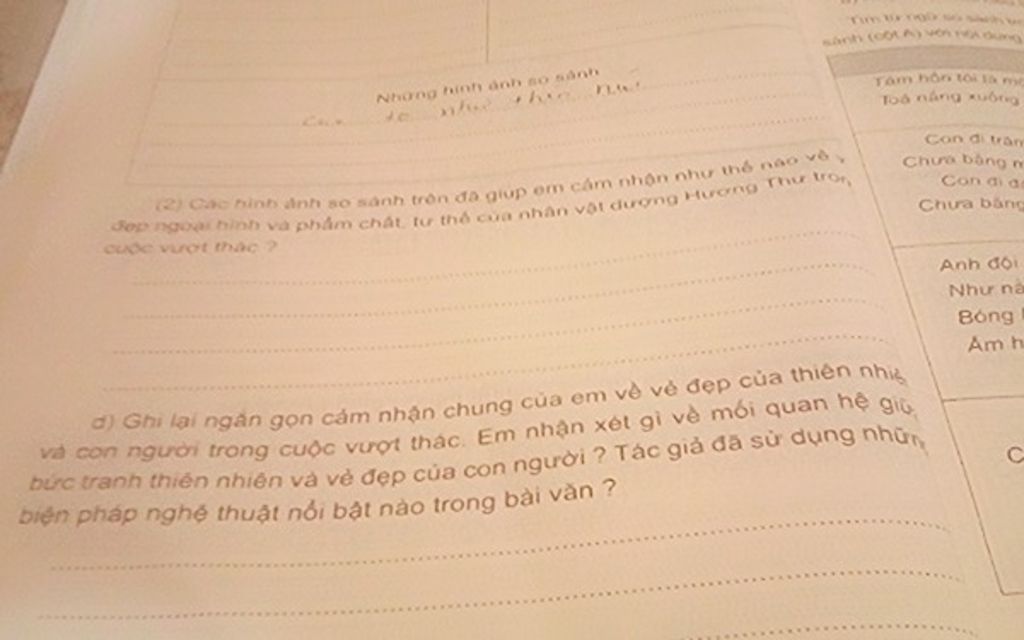 Những hình ảnh so sánh
như
(2) Các hình ảnh so sánh trên đã giúp em cảm nhận như thế nào về
đẹp ngoại hình và phẩm chất, tư thế của nhân vật dượng Hương Thư tron
cuộc vượt thác ?
d) Ghi lại ngắn gọn cảm nhận chung của em về vẻ đẹp của thiên nhiê
và con người trong cuộc vượt thác. Em nhận xét gì về mối quan hệ giữ
bức tranh thiên nhiên và vẻ đẹp của con người ? Tác giả đã sử dụng nhữn
biện pháp nghệ thuật nổi bật nào trong bài văn ?
Tìm từ ngữ so sánh
sánh (cột A) với nội dung
Tâm hồn tôi là mộ
Toả nắng xuống
Con đi trăm
Chưa bằng m
Con đi đá
Chưa bằng
Anh đội
Như nằ
Bóng
Ấm h
C